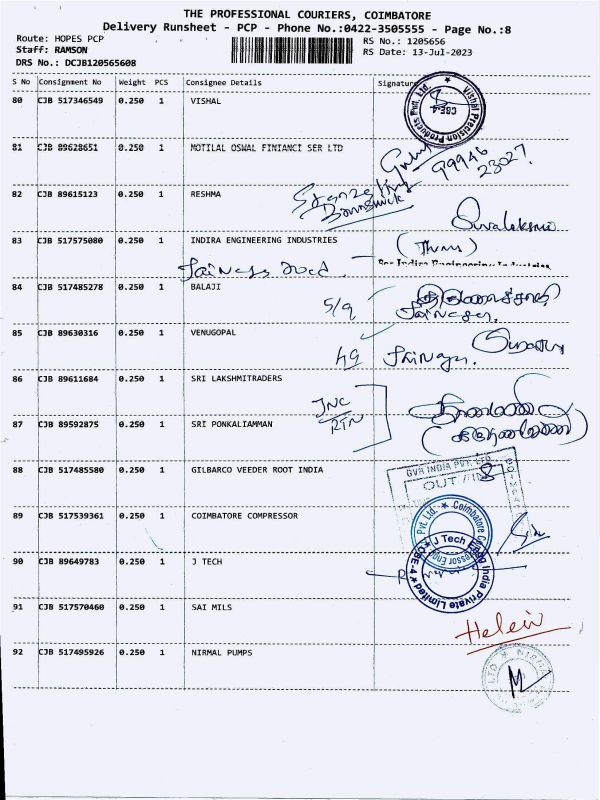 THE PROFESSIONAL COURIERS, COIMBATORE
Delivery Runsheet - PCP - Phone No.:0422-3505555 - Page No.:8
Route: HOPES PCP
RS No.: 1205656
Staff: RAMSON
RS Date: 13-Jul-2023
DRS No.: DCJB120565608
S No Consignment No Weight PCS Consignee Details Signature
80 CJB 517346549 0.250 1 VISHAL
Vishal Precision Products Pvt. Ltd. CBE-4
81 CJB 89628651 0.250 1 MOTILAL OSWAL FINIANCI SER LTD
99946
23027
82 CJB 89615123 0.250 1 RESHMA
Brunswick
83 CJB 517575080 0.250 1 INDIRA ENGINEERING INDUSTRIES
For Indira Engineering Industries
84 CJB 517485278 0.250 1 BALAJI
S/9
85 CJB 89630316 0.250 1 VENUGOPAL
86 CJB 89611684 0.250 1 SRI LAKSHMITRADERS
87 CJB 89592875 0.250 1 SRI PONKALIAMMAN
RTN
88 CJB 517485580 0.250 1 GILBARCO VEEDER ROOT INDIA
GVR INDIA PVT. LTD
OUT / IN
89 CJB 517539361 0.250 1 COIMBATORE COMPRESSOR
90 CJB 89649783 0.250 1 J TECH
J Tech Engg India Private Limited CBE-4
91 CJB 517570460 0.250 1 SAI MILS
Helen
92 CJB 517495926 0.250 1 NIRMAL PUMPS